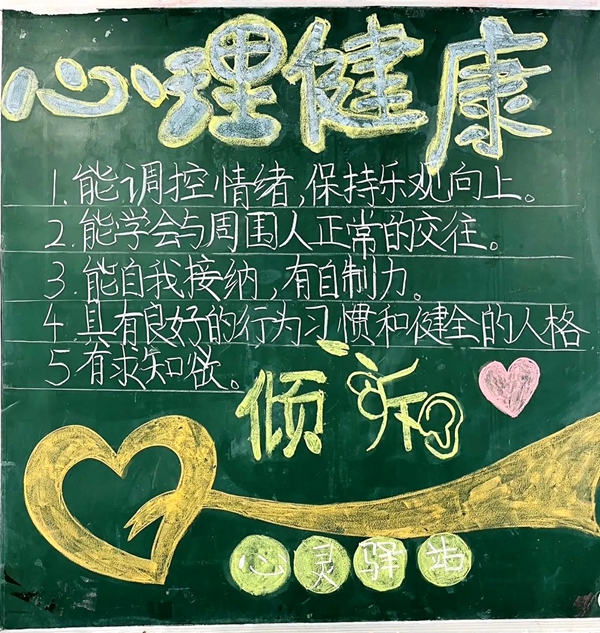 心理健康
1.能调控情绪,保持乐观向上。
2.能学会与周围人正常的交往。
3.能自我接纳,有自制力。
4.具有良好的行为习惯和健全的人格
5有求知欲。
倾诉
心灵驿站